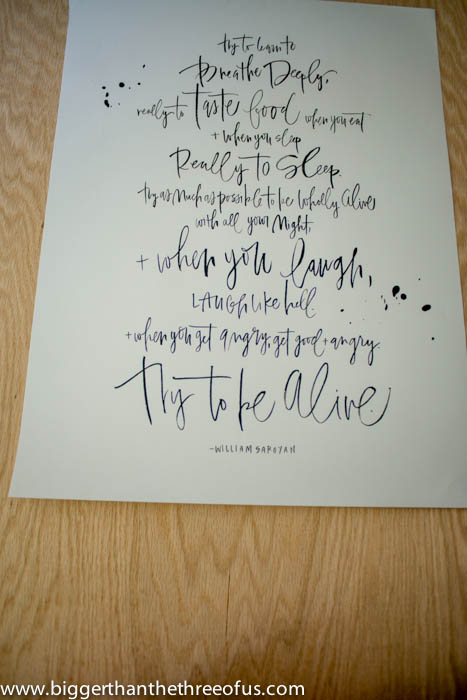 try to learn to
Breathe Deeply,
really to taste food when you eat
+ when you sleep
Really to Sleep.
try as much as possible to be wholly alive
with all your might,
+ when you laugh,
LAUGH like hell.
+ when you get angry, get good + angry.
Try to be Alive.
-WILLIAM SAROYAN
www.biggerthanthethreeofus.com